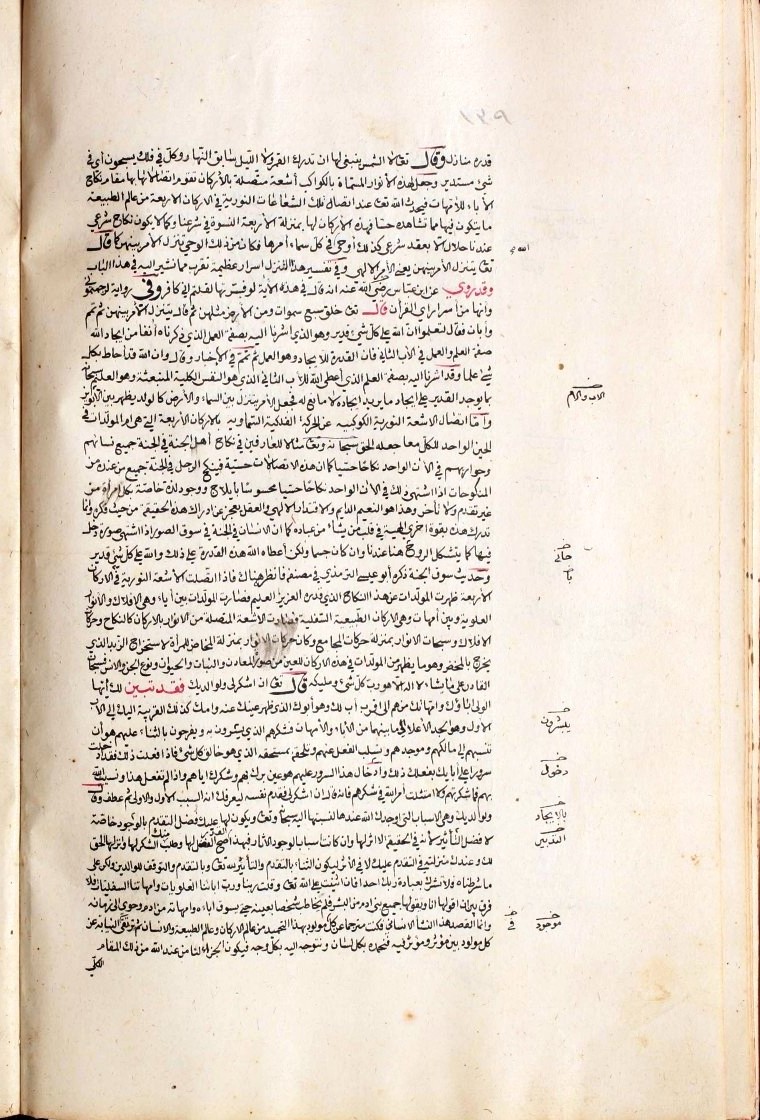 ١٣٩
قدره منازل وقال تعالى لا الشمس ينبغي لها ان تدرك القمر ولا الليل سابق النهار وكل في فلك يسبحون أي في
شيء مستدير وجعل لهذه الأنوار المسماة بالكواكب أشعة متصلة بالأركان تقوم اتصالاتها بها مقام نكاح
الآباء للأمهات فيحدث الله تعالى عند اتصال تلك الشعاعات النورية في الأركان الأربعة من عالم الطبيعة
ما يتكون فيها مما نشاهده حسا فهذه الأركان لها بمنزلة الأربعة النسوة في شرعنا وكما لا يكون نكاح شرعي
عندنا حلالا الا بعقد شرعي كذلك أوحى في كل سماء أمرها فكان من ذلك الوحي تنزل الأمر بينهن كما قال
تعالى يتنزل الأمر بينهن يعني الأمر الإلهي وفي تفسير هذا التنزل اسرار عظيمة تقرب مما نشير اليه في هذا الباب
وقد روي عن ابن عباس رضي الله عنه انه قال في هذه الآية لو فسرتها لقلتم إني كافر وفي رواية لرجمتموني
وانها من أسرار آي القرآن قال تعالى خلق سبع سموات ومن الأرض مثلهن ثم قال يتنزل الأمر بينهن ثم تمم
وأبان فقال لتعلموا ان الله على كل شيء قدير وهو الذي أشرنا اليه بصفة العمل الذي ذكرناه آنفا من ايجاد الله
صفة العلم والعمل في الأب الثاني فان القدرة للايجاد وهو العمل ثم تمم في الأخبار وقال وان الله قد أحاط بكل
شيء علما وقد أشرنا اليه بصفة العلم الذي أعطى الله للأب الثاني الذي هو النفس الكلية المنبعثة وهو العليم سبحانه
بما يوجد القدير على ايجاد ما يريد ايجاده لا مانع له فجعل الأمر يتنزل بين السماء والأرض كالولد يظهر بين الأبوين
وأما اتصال الأشعة النورية الكوكبية عن الحركة الفلكية السماوية بالأركان الأربعة التي هي ام المولدات في
الحين الواحد للكل معا جعله الحق سبحانه وتعالى مثالا للعارفين في نكاح أهل الجنة في الجنة جميع نسائهم
وجواريهم في الآن الواحد نكاحا حسيا كما ان هذه الاتصالات حسية فينكح الرجل في الجنة جميع من عنده من
المنكوحات اذا اشتهى ذلك في الآن الواحد نكاحا حسيا محسوسا بايلاج ووجود لذة خاصة بكل امرأة من
غير تقدم ولا تأخر وهذا هو النعيم الدايم والاقتدار الالهي والعقل يعجز عن ادراك هذه الحقيقة من حيث فكره وانما
تدرك هذا بقوة اخرى الهية في قلب من يشاء من عباده كما ان الانسان في الجنة في سوق الصور اذا اشتهى صورة دخل
فيها كما يتشكل الروح هنا عندنا وان كان جسما ولكن أعطاه الله هذه القدرة على ذلك والله على كل شيء قدير
وحديث سوق الجنة ذكره أبو عيسى الترمذي في مصنفه فانظره هناك فاذا اتصلت الأشعة النورية في الأركان
الأربعة ظهرت المولدات عن هذا النكاح الذي قدره العزيز العليم فصارت المولدات بين آباء وهي الأفلاك والأنوار
العلوية وبين أمهات وهي الأركان الطبيعية السفلية وصارت الأشعة المتصلة من الأنوار بالأركان كالنكاح وحركات
الأفلاك وسبحات الأنوار بمنزلة حركات المجامع وكان حركات الأنوار بمنزلة المخاض للمرأة لاستخراج الزبد الذي
يخرج بالمخض وهو ما يظهر من المولدات في هذه الأركان للعين من صورة المعادن والنبات والحيوان ونوع الجن والانس سبحان
القادر على ما يشاء لا اله الا هو رب كل شيء ومليكه قال تعالى ان اشكر لي ولوالديك فقد تبين لك أيها
الولي أباؤك وأمهاتك من هم الى أقرب أب لك وهو أبوك الذي ظهر عينك عنه وأمك كذلك القريبة اليك الى الأب
الأول وهو الجد الأعلى الى ما بينهما من الآباء والأمهات فشكرهم الذي يسرون به ويفرحون بالثناء عليهم هو ان
تنسبهم الى مالكهم وموجدهم وتسلب الفعل عنهم وتلحقه بمستحقه الذي هو خالق كل شيء فاذا فعلت ذلك فقد أدخلت
سرورا على أبايك بفعلك ذلك وأدخال هذا السرور عليهم هو عين برك بهم وشكرك اياهم واذا لم تفعل هذا ونسيت الله
بهم فما شكرتهم ولا امتثلت أمر الله في شكرهم فانه قال ان اشكر لي فقدم نفسه ليعرفك انه السبب الأول والأولى ثم عطف وقال
ولوالديك وهي الأسباب التي أوجدك الله عندها لتنسبها اليه سبحانه وتعالى ويكون لها عليك فضل التقدم بالوجود خاصة
لا فضل التأثير لأنه في الحقيقة لا أثر لها وان كانت أسبابا لوجود الآثار فبهذا القدر صح الفضل لها وطلب منك الشكر لها وأنزلها الحق
لك وعندك منزلته في التقدم عليك لا في الأثر ليكون الثناء بالتقدم والتأثير لله تعالى وبالتقدم والتوقف للوالدين ولكن على
ما شرطناه ولا تشرك بعبادة ربك احدا فاذا أثنيت على الله تعالى وقلت ربنا ورب آبائنا العلويات وأمهاتنا السفليات فلا
فرق بين ان أقولها أنا أو يقولها جميع بني آدم من البشر فلم نخاطب شخصا بعينه حتى نسوق آباءه وأمهاته من آدم وحوى الى زمانه
وانما القصد هذا النشأ الانساني فكنت مترجما عن كل مولود بهذا التحميد من عالم الأركان وعالم الطبيعة والانسان ثم ترقى النيابة عن
كل مولود بين مؤثر ومؤثر فيه فنحمده بكل لسان ونتوجه اليه بكل وجه فيكون الجزاء لنا من عند الله من ذلك المقام
الكلي
الاب والام
يبشرون
دخول
بالايجاد
موجود
في